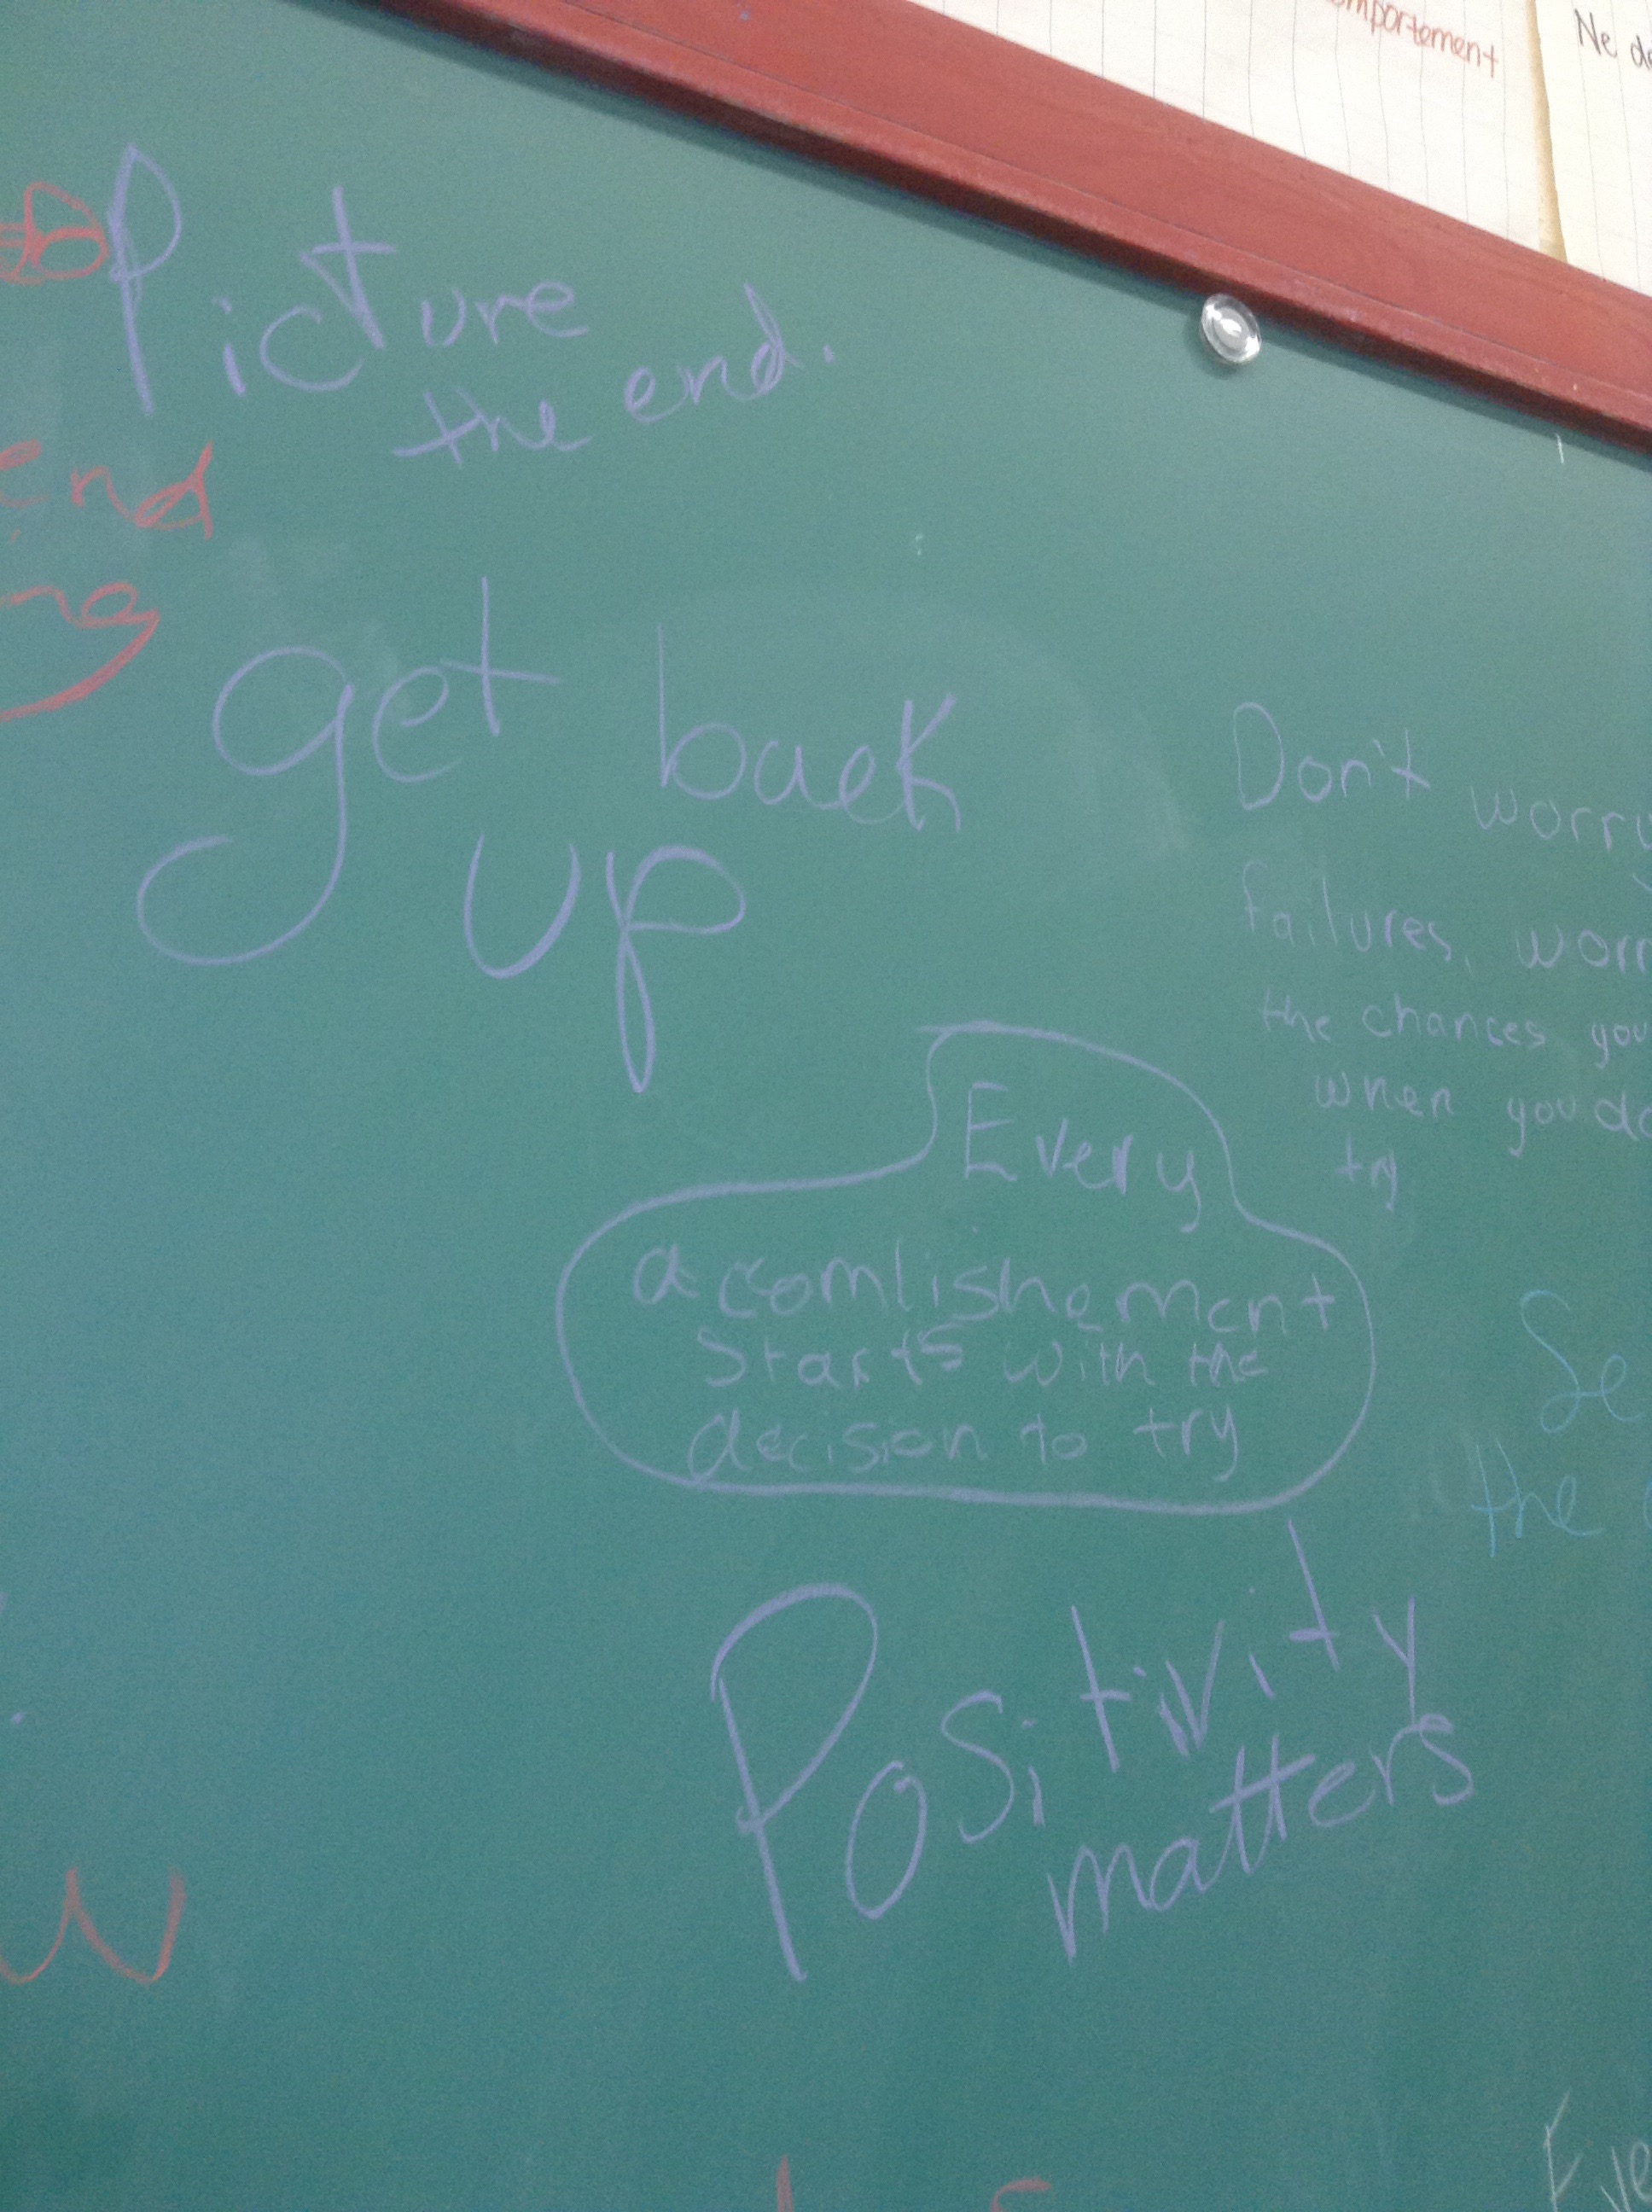 Picture
the end.
end
get back
up
Don't worry
failures, worr
the chances you
when you do
try
Every
acomlishement
starts with the
decision to try
Se
the
Positivity
matters
omportement
Ne de